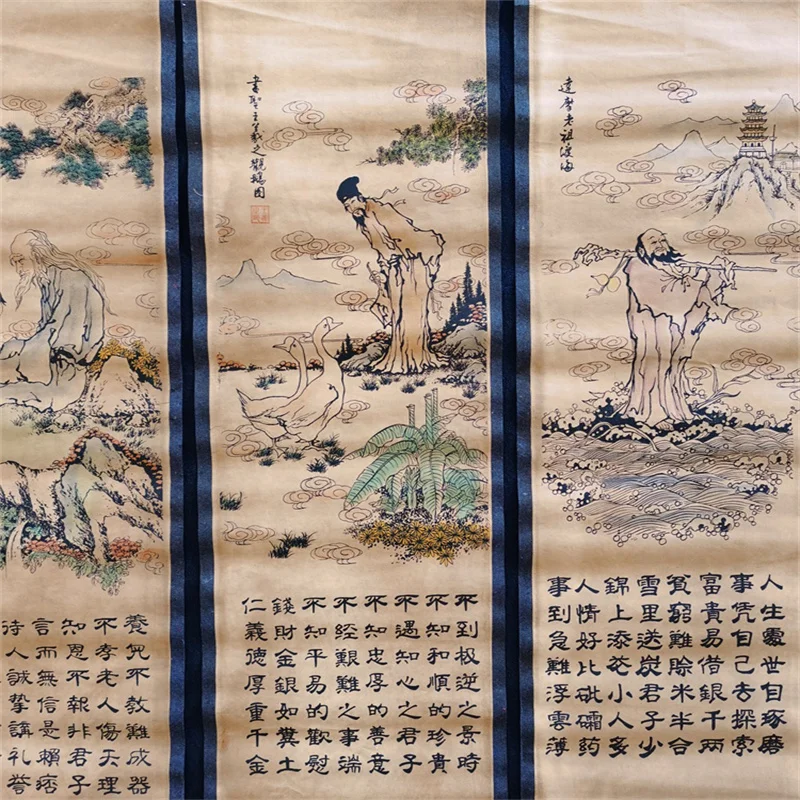 達摩老祖渡海
人生處世自琢磨
事凭自己去探索
富貴易借銀千两
貧窮難賒米半合
雪里送炭君子少
錦上添花小人多
人情好比砒礵药
事到急難浮雲薄
書聖王羲之觀鵝图
不到极逆之景時
不知和順的珍貴
不遇知心之君子
不知忠厚的善意
不經艱難之事端
不知平易的歡慰
錢財金銀如糞土
仁義德厚重千金
養兒不教難成器
不孝老人傷天理
知恩不報非君子
言而無信是賴痞
待人誠摯講礼誉